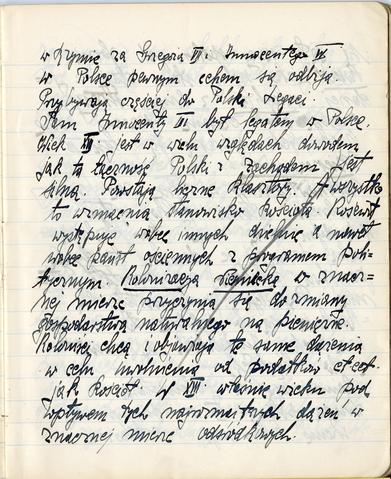 w Rzymie za Grzegorza IX i Innocentego IV
w Polsce pewnym echem się odbija.
Przybywają częściej do Polski legaci.
Sam Innocenty III był legatem w Polsce.
Wiek XIII jest w wielu względach dowodem
jak ta łączność Polski z zachodem jest
silna. Powstają liczne klasztory. A wszystko
to wzmacnia stanowisko kościoła. Kościół
występuje wobec innych dzielnic a nawet
wobec państ ościennych z programem poli-
tycznym. Kolonizacja niemiecka w znacz-
nej mierze przyczynia się do zmiany
gospodarstwa naturalnego na pieniężne.
Koloniści chcą i objawiają te same dążenia
w celu uwolnienia od podatków etc.
jak kościół. W XIII właśnie wieku pod
wpływem tych najrozmaitszych dążeń w
znacznej mierze odśrodkowych.